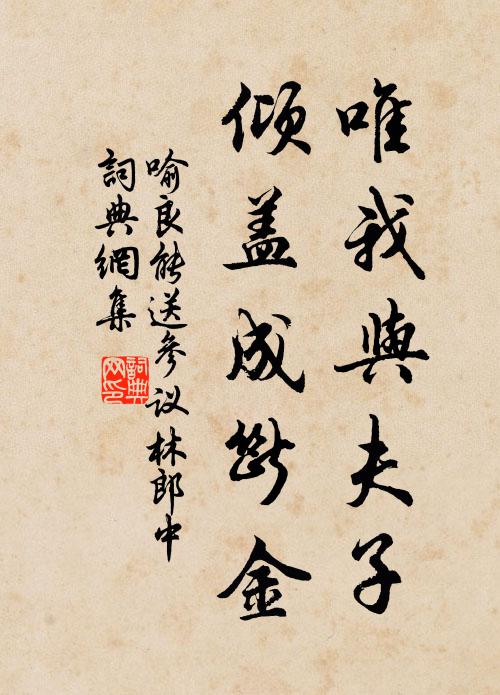 唯我與夫子
傾盖成斷金
喻良能送參议林郎中
詞典網集
詞典
网印